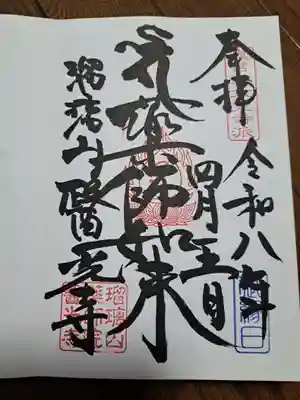 奉拝
令和八年
四月五日
薬師如来
瑠璃山
醫光寺